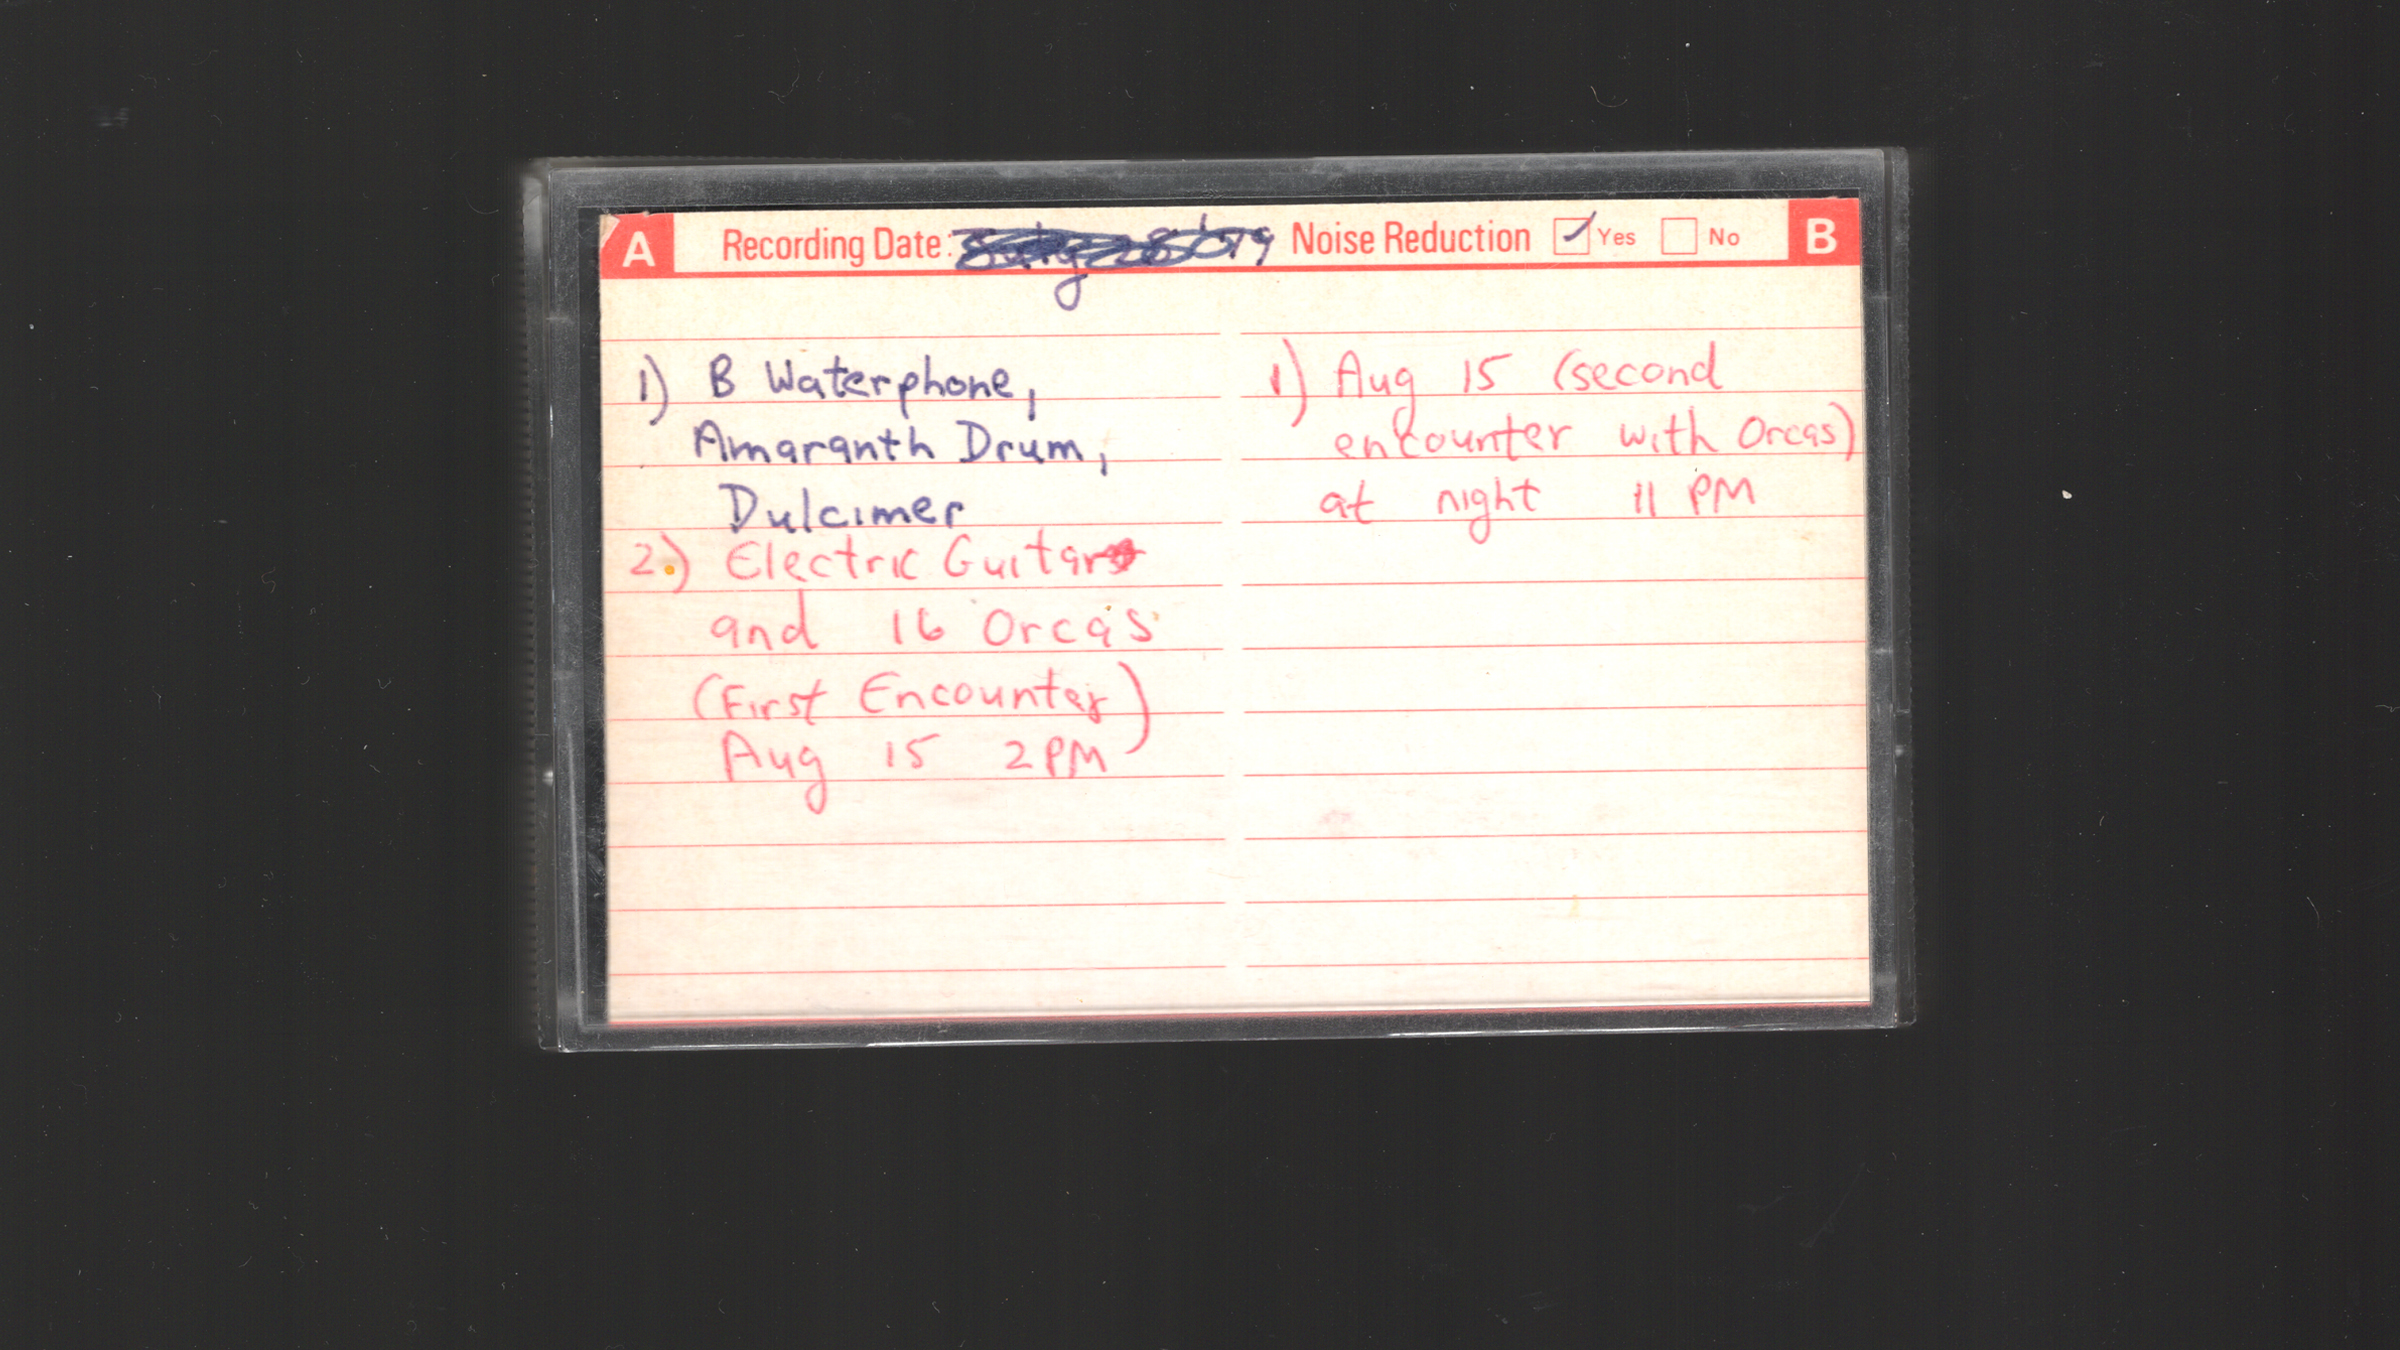 A Recording Date: Noise Reduction Yes No B
1) B Waterphone,
Amaranth Drum,
Dulcimer
2.) Electric Guitar
and 16 Orcas
(First Encounter)
Aug 15 2PM
1) Aug 15 (second
encounter with Orcas)
at night 11 PM